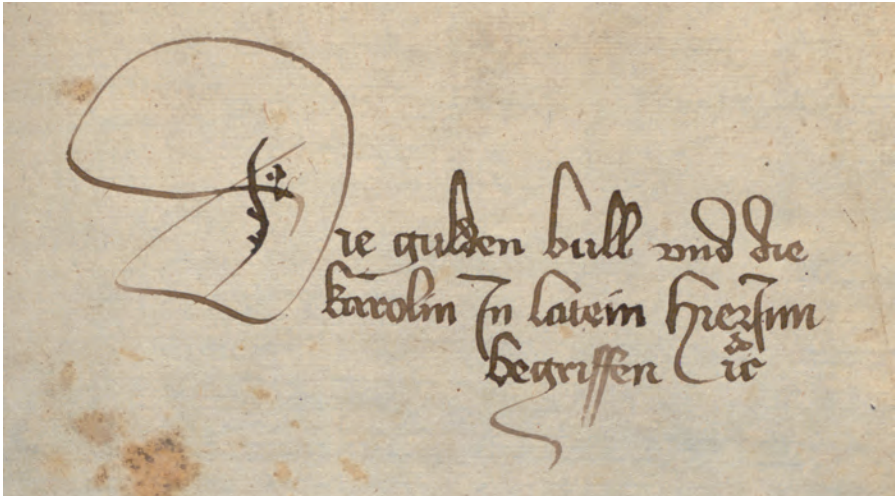 Die gulden bull vnd die
karolin Jn latein HierJnn
begriffen